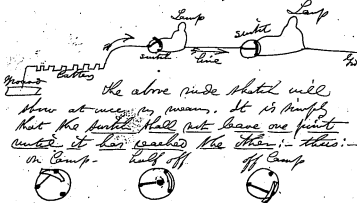 Lamp
Lamp
switch
switch
line
Gnd
Ground
Battery
the above rude sketch will
show at once my means. It is simply
that the switch shall not leave one point
until it has reached the other:- thus:-
on Lamp. half off. off Lamp